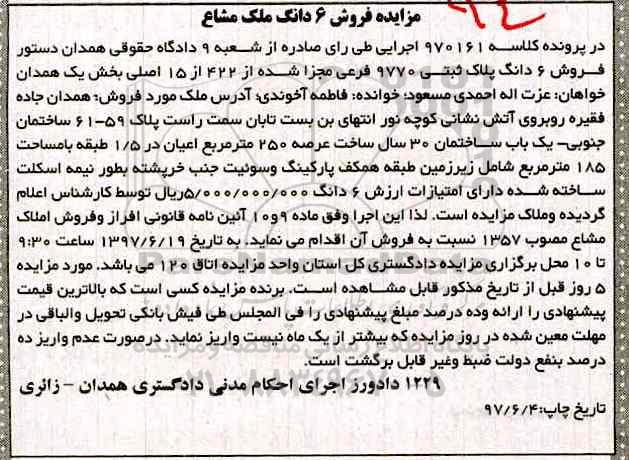 مزایده فروش ۶ دانگ ملک مشاع
در پرونده کلاسه ۹۷۰۱۶۱ اجرایی طی رای صادره از شعبه ۹ دادگاه حقوقی همدان دستور
فروش ۶ دانگ پلاک ثبتی ۹۷۷۰ فرعی مجزا شده از ۴۲۲ از ۱۵ اصلی بخش یک همدان
خواهان: عزت اله احمدی مسعود؛ خوانده: فاطمه آخوندی؛ آدرس ملک مورد فروش: همدان جاده
فقیره روبروی آتش نشانی کوچه نور انتهای بن بست تابان سمت راست پلاک ۵۹-۶۱ ساختمان
جنوبی- یک باب ساختمان ۳۰ سال ساخت عرصه ۲۵۰ مترمربع اعیان در ۱/۵ طبقه بامساحت
۱۸۵ مترمربع شامل زیرزمین طبقه همکف پارکینگ وسوئیت جنب خرپشته بطور نیمه اسکلت
ساخته شده دارای امتیازات ارزش ۶ دانگ ۵/۰۰۰/۰۰۰/۰۰۰ریال توسط کارشناس اعلام
گردیده وملاک مزایده است. لذا این اجرا وفق ماده ۹و۱۰ آئین نامه قانونی افراز وفروش املاک
مشاع مصوب ۱۳۵۷ نسبت به فروش آن اقدام می نماید. به تاریخ ۱۳۹۷/۶/۱۹ ساعت ۹:۳۰
تا ۱۰ محل برگزاری مزایده دادگستری کل استان واحد مزایده اتاق ۱۲۰ می باشد. مورد مزایده
۵ روز قبل از تاریخ مذکور قابل مشاهده است. برنده مزایده کسی است که بالاترین قیمت
پیشنهادی را ارائه وده درصد مبلغ پیشنهادی را فی المجلس طی فیش بانکی تحویل والباقی در
مهلت معین شده در روز مزایده که بیشتر از یک ماه نیست واریز نماید. درصورت عدم واریز ده
درصد بنفع دولت ضبط وغیر قابل برگشت است.
۱۲۲۹ دادورز اجرای احکام مدنی دادگستری همدان - زائری
تاریخ چاپ:۹۷/۶/۴